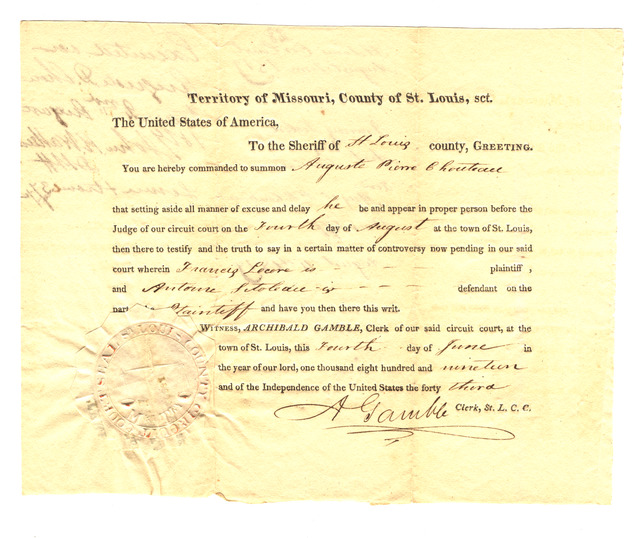 Territory of Missouri, County of St. Louis, sct.
The United States of America,
To the Sheriff of St Louis county, GREETING.
You are hereby commanded to summon Auguste Pierre Chouteau
that setting aside all manner of excuse and delay he be and appear in proper person before the
Judge of our circuit court on the Fourth day of August at the town of St. Louis,
then there to testify and the truth to say in a certain matter of controversy now pending in our said
court wherein Francis is plaintiff,
and Antoine is defendant on the
part Plaintiff and have you then there this writ.
WITNESS, ARCHIBALD GAMBLE, Clerk of our said circuit court, at the
town of St. Louis, this Fourth day of June in
the year of our lord, one thousand eight hundred and nineteen
and of the Independence of the United States the forty third
A Gamble Clerk, St. L. C. C.